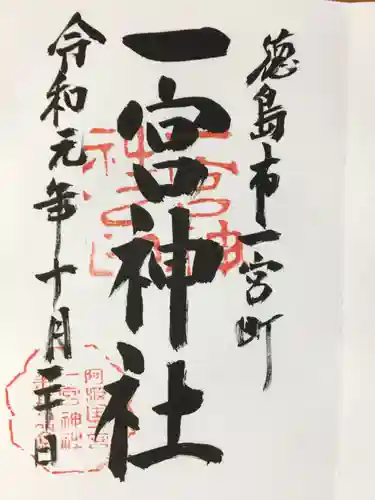 徳島市一宮町
一宮神社
令和元年十月二十日
阿波国一宮
一宮神社